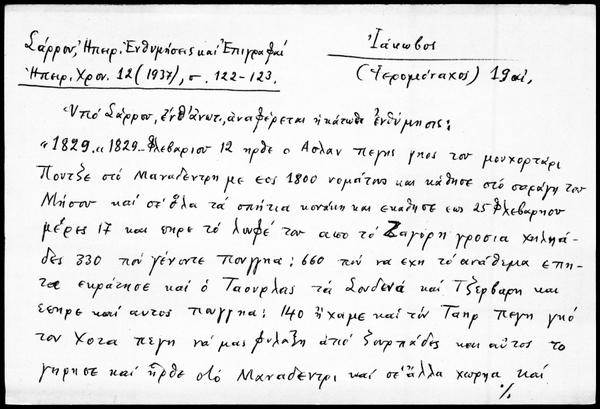 Σάρρου, Ἠπειρ. Ἐνθυμήσεις καὶ Ἐπιγραφαί
Ἠπειρ. Χρον. 12 (1937), σ. 122-123.
Ἰάκωβος
(Ἱερομόναχος) 19 αἰ.
Ὑπὸ Σάρρου, ἔνθ' ἀνωτ., ἀναφέρεται ἡ κάτωθι ἐνθύμησις:
«1829.« 1829 Φλεβαρίου 12 ηρθε ο Ασλαν πεγης γηος του μουχορτάρι
Πουτζε στὸ Μαναδεντρη με εος 1800 νομάτους και κάθησε στὸ σαράγη του
Μήσιου καὶ σ' ὅλα τὰ σπήτια κονάκη και εκαθησε εως 25 Φλεβαρηου
μέρες 17 και πηρε τὸ λουφέ του απο τὸ Ζαγόρη γροσια χηλιά-
δες 330 ποὺ γένουντε πουγγηα: 660 ποὺ να εχη τὸ ανάθεμα επη-
τα εκράτησε καὶ ὁ Ταουρλας τὰ Σουδενὰ καὶ Τζερβαρη και
επηρε και αυτος πουγγηα: 140 ἤχαμε καὶ τὸν Ταηρ πεγη γηὸ
του Χοτα πεγη νὰ μας φυλαξη ἀπὸ ζουρπάδες και αὖτος το
γηρησε καὶ ἦρθε στὸ Μαναδεντρι καὶ σ' ἄλλα χωρηα καὶ
%